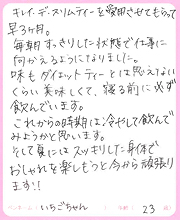 キレイ・デ・スリムティーを愛用させてもらって
早3ヶ月。
毎朝すっきりした状態で仕事に
向かえるようになりました。
味もダイエットティーとは思えない
くらい美味しくて、寝る前に必ず
飲んでいます。
これからの時期は冷やして飲んで
みようかと思います。
そして夏にはスッキリした身体で
おしゃれを楽しもうと今から頑張り
ます!!
ペンネーム:いちごちゃん 年齢:23歳